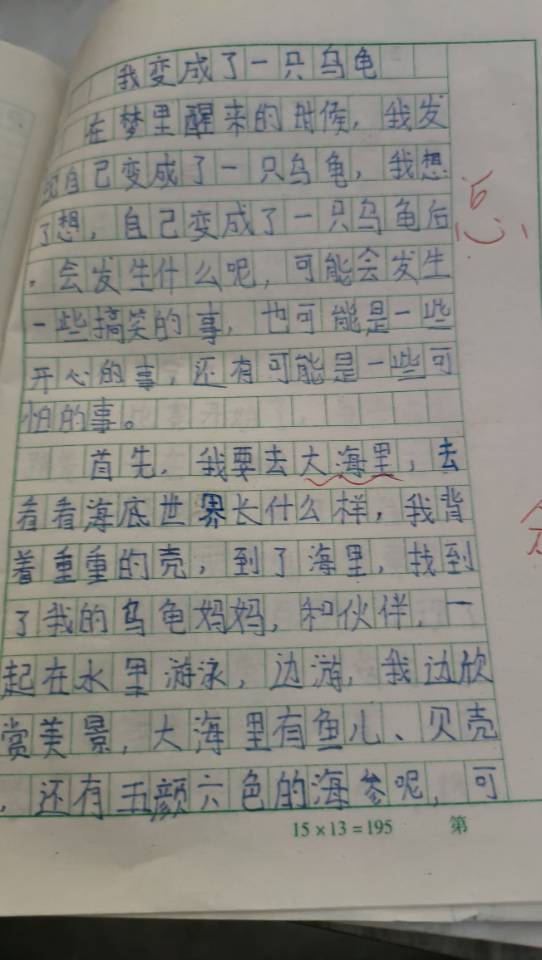 我变成了一只乌龟
在梦里醒来的时候，我发
现自己变成了一只乌龟，我想
了想，自己变成了一只乌龟后
，会发生什么呢，可能会发生
一些搞笑的事，也可能是一些
开心的事，还有可能是一些可
怕的事。
首先，我要去大海里，去
看看海底世界长什么样，我背
着重重的壳，到了海里，找到
了我的乌龟妈妈，和伙伴，一
起在水里游泳，边游，我边欣
赏美景，大海里有鱼儿、贝壳
，还有五颜六色的海参呢，可
15×13=195 第